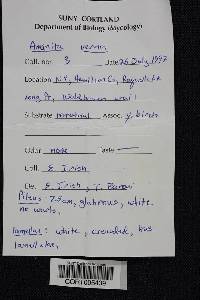 SUNY CORTLAND
Department of Biology (Mycology)
Amanita verna
Coll. no. 3 Date 26 July 1992
Location N.Y., Hamilton Co, Raquette Lk
Long Pt,
Substrate terrestrial Assoc. y. birch
Odor none Taste
Coll. E. Trish
Det. E. Trish, T.
Pileus: 7.5cm, glabrous, white
no warts,
Lamellae: white, crowded, has
lamellulae,
CORT005409